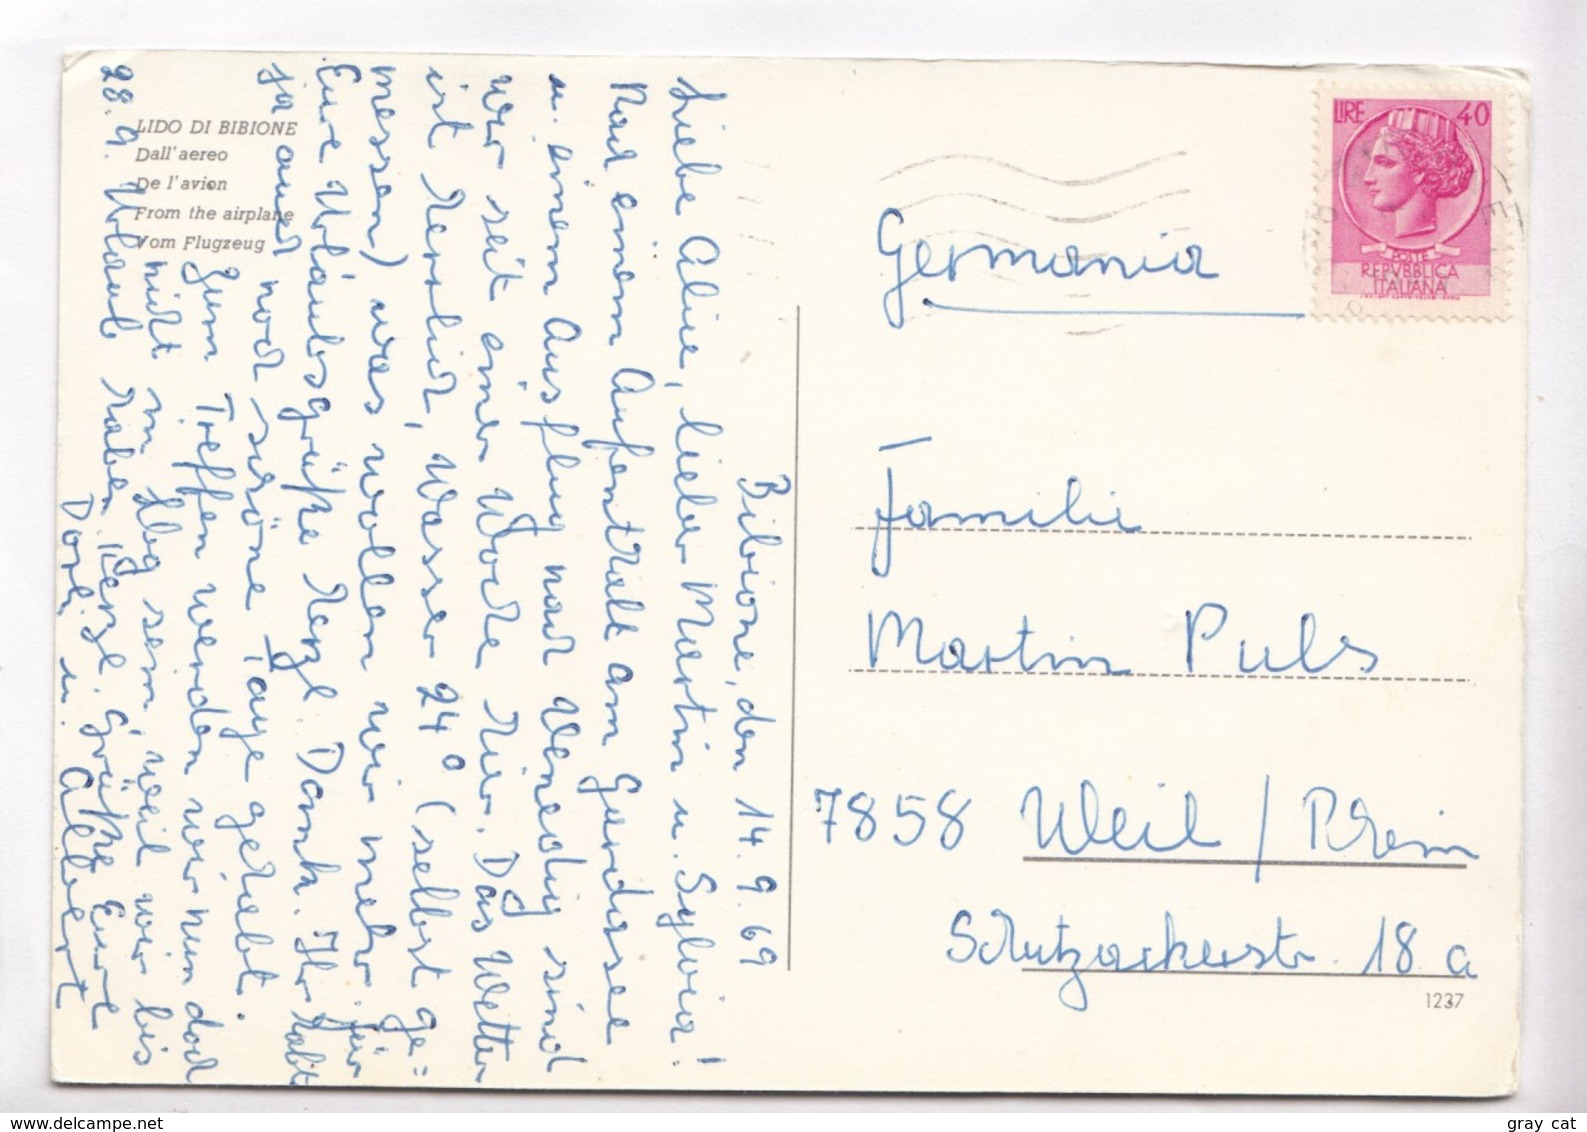 LIDO DI BIBIONE
Dall'aereo
De l'avion
From the airplane
Vom Flugzeug
Bibione, den 14.9.69
Liebe Alice, lieber Martin u. Sylvia!
Nach einem Aufenthalt am Gardasee
u. einem Ausflug nach Venedig sind
wir seit einer Woche hier. Das Wetter
ist herrlich, Wasser 24° (selbst ge=
messen) was wollen wir mehr. Für
Eure Urlaubsgrüße herzl. Dank. Ihr habt
ja auch noch schöne Tage gehabt.
Zum Treffen werden wir nun doch
nicht in Hbg sein, weil wir bis
28.9. Urlaub haben. Herzl. Grüße Eure
Dorli u. Albert
LIRE 40
POSTE
REPVBBLICA
ITALIANA
Germania
Familie
Martin Puls
7858 Weil / Rhein
Schützackerstr. 18 a
1237
www.delcampe.net
gray cat